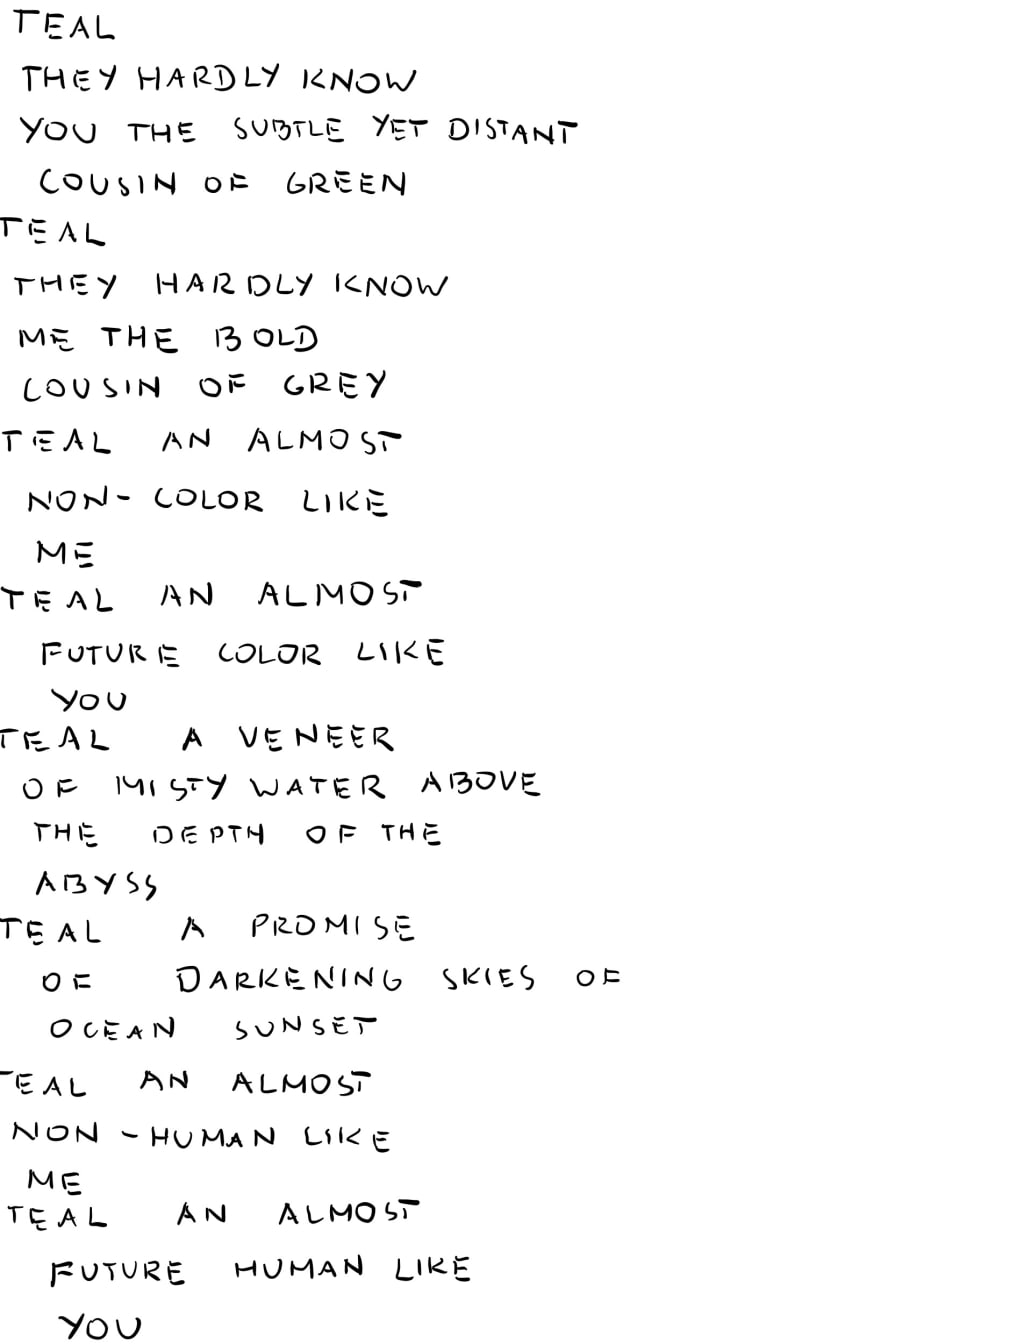 TEAL
THEY HARDLY KNOW
YOU THE SUBTLE YET DISTANT
COUSIN OF GREEN
TEAL
THEY HARDLY KNOW
ME THE BOLD
COUSIN OF GREY
TEAL AN ALMOST
NON-COLOR LIKE
ME
TEAL AN ALMOST
FUTURE COLOR LIKE
YOU
TEAL A VENEER
OF MISTY WATER ABOVE
THE DEPTH OF THE
ABYSS
TEAL A PROMISE
OF DARKENING SKIES OF
OCEAN SUNSET
TEAL AN ALMOST
NON-HUMAN LIKE
ME
TEAL AN ALMOST
FUTURE HUMAN LIKE
YOU